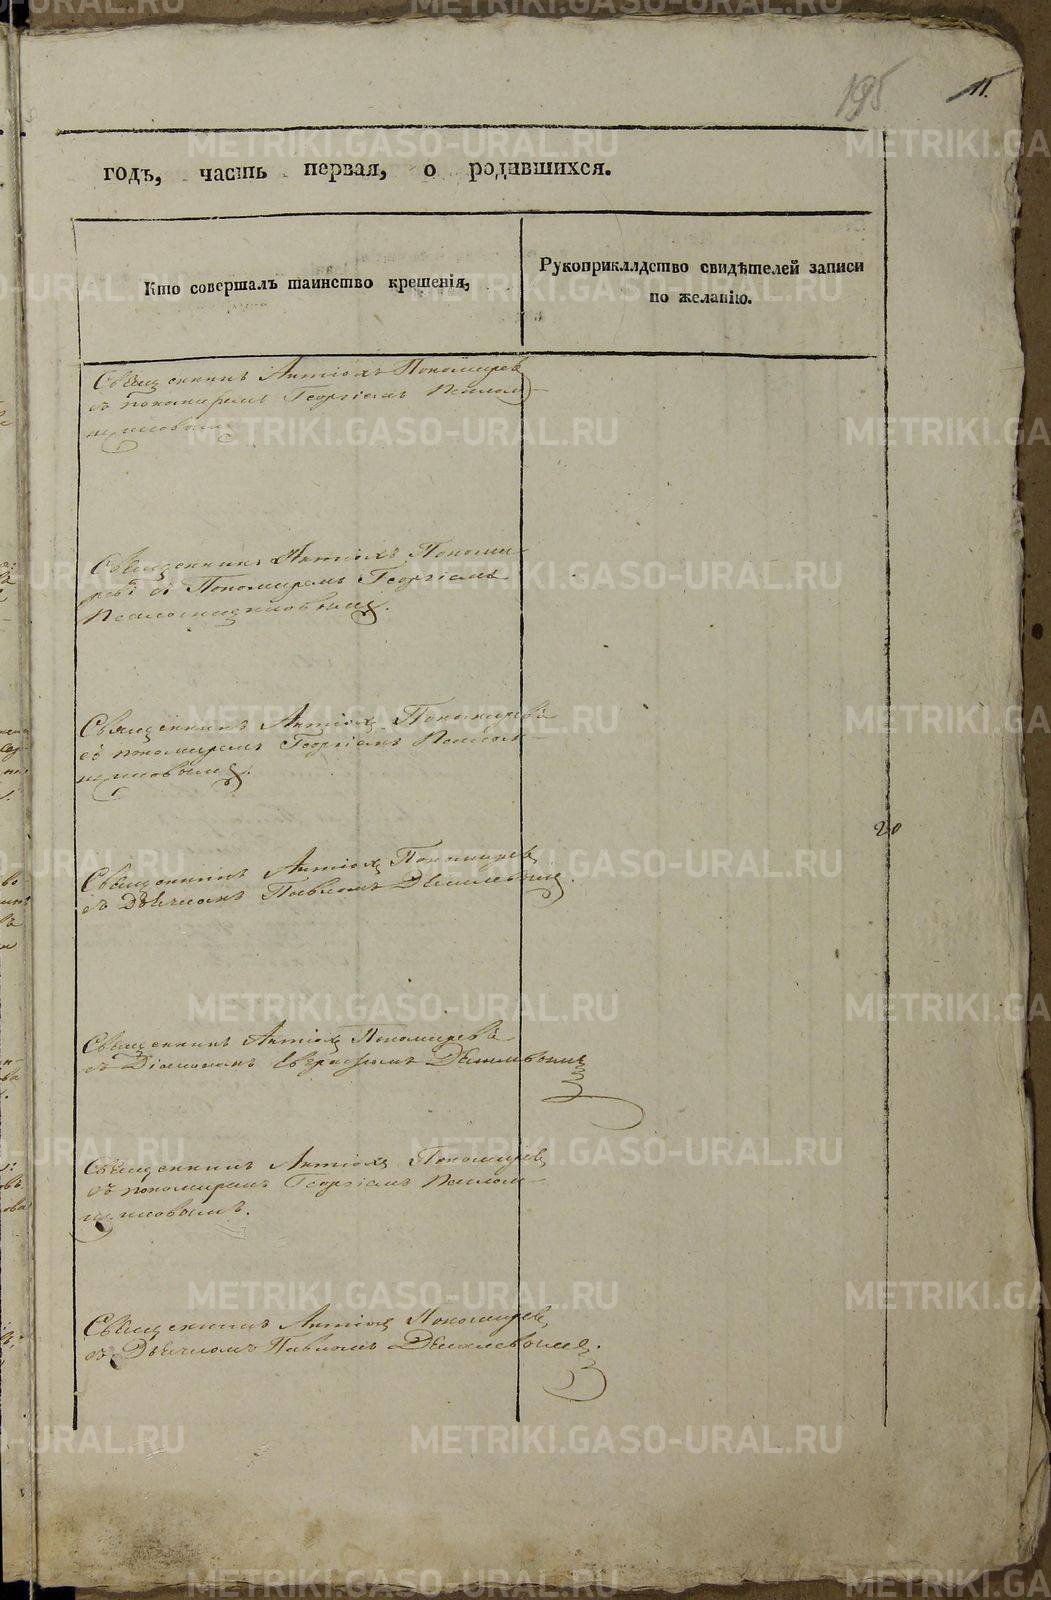 195
11.
годъ, часть первая, о родившихся.
Кто совершалъ таинство крещенія,
Рукоприкладство свидѣтелей записи
по желанію.
Священникъ Антіохъ Пономаревъ
съ пономаремъ Георгіемъ
Священникъ Антіохъ Понома-
ревъ съ Пономаремъ Георгіемъ
Священникъ Антіохъ Пономаревъ
съ пономаремъ Георгіемъ
20
Священникъ Антіохъ Пономаревъ
съ Дьячкомъ Павломъ
Священникъ Антіохъ Пономаревъ
съ Діакономъ Евграфомъ
Священникъ Антіохъ Пономаревъ
съ пономаремъ Георгіемъ
Священникъ Антіохъ Пономаревъ
съ Дьячкомъ Павломъ
METRIKI.GASO-URAL.RU